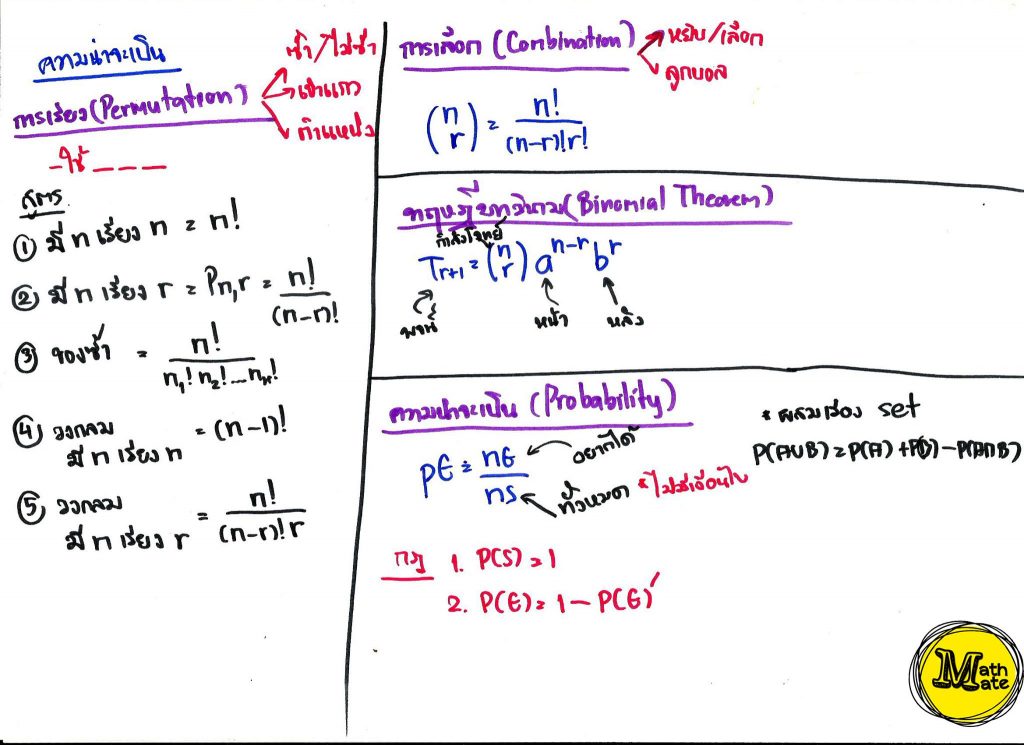 ความน่าจะเป็น
การเรียง(Permutation)
ซ้ำ/ไม่ซ้ำ
เข้าแถว
ตำแหน่ง
-ใช้ _ _ _
สูตร
① มี n เรียง n = n!
② มี n เรียง r = Pn,r = n!/(n-r)!
③ ของซ้ำ = n!/n₁! n₂! ... nₙ!
④ วงกลม
มี n เรียง n = (n-1)!
⑤ วงกลม
มี n เรียง r = n!/(n-r)! r
การเลือก (Combination)
หยิบ/เลือก
ลูกบอล
(n r) = n!/(n-r)! r!
ทฤษฎีบททวินาม(Binomial Theorem)
กำลังโจทย์
Tr+1 = (n r) a^n-r b^r
พจน์
หน้า
หลัง
ความน่าจะเป็น (Probability)
PE = nE/nS
อยากได้
ทั้งหมด *ไม่มีเงื่อนไข
* ผสมเรื่อง set
P(A∪B) = P(A) + P(B) - P(A∩B)
กฎ 1. P(S) = 1
2. P(E) = 1 - P(E)′
Math
Mate